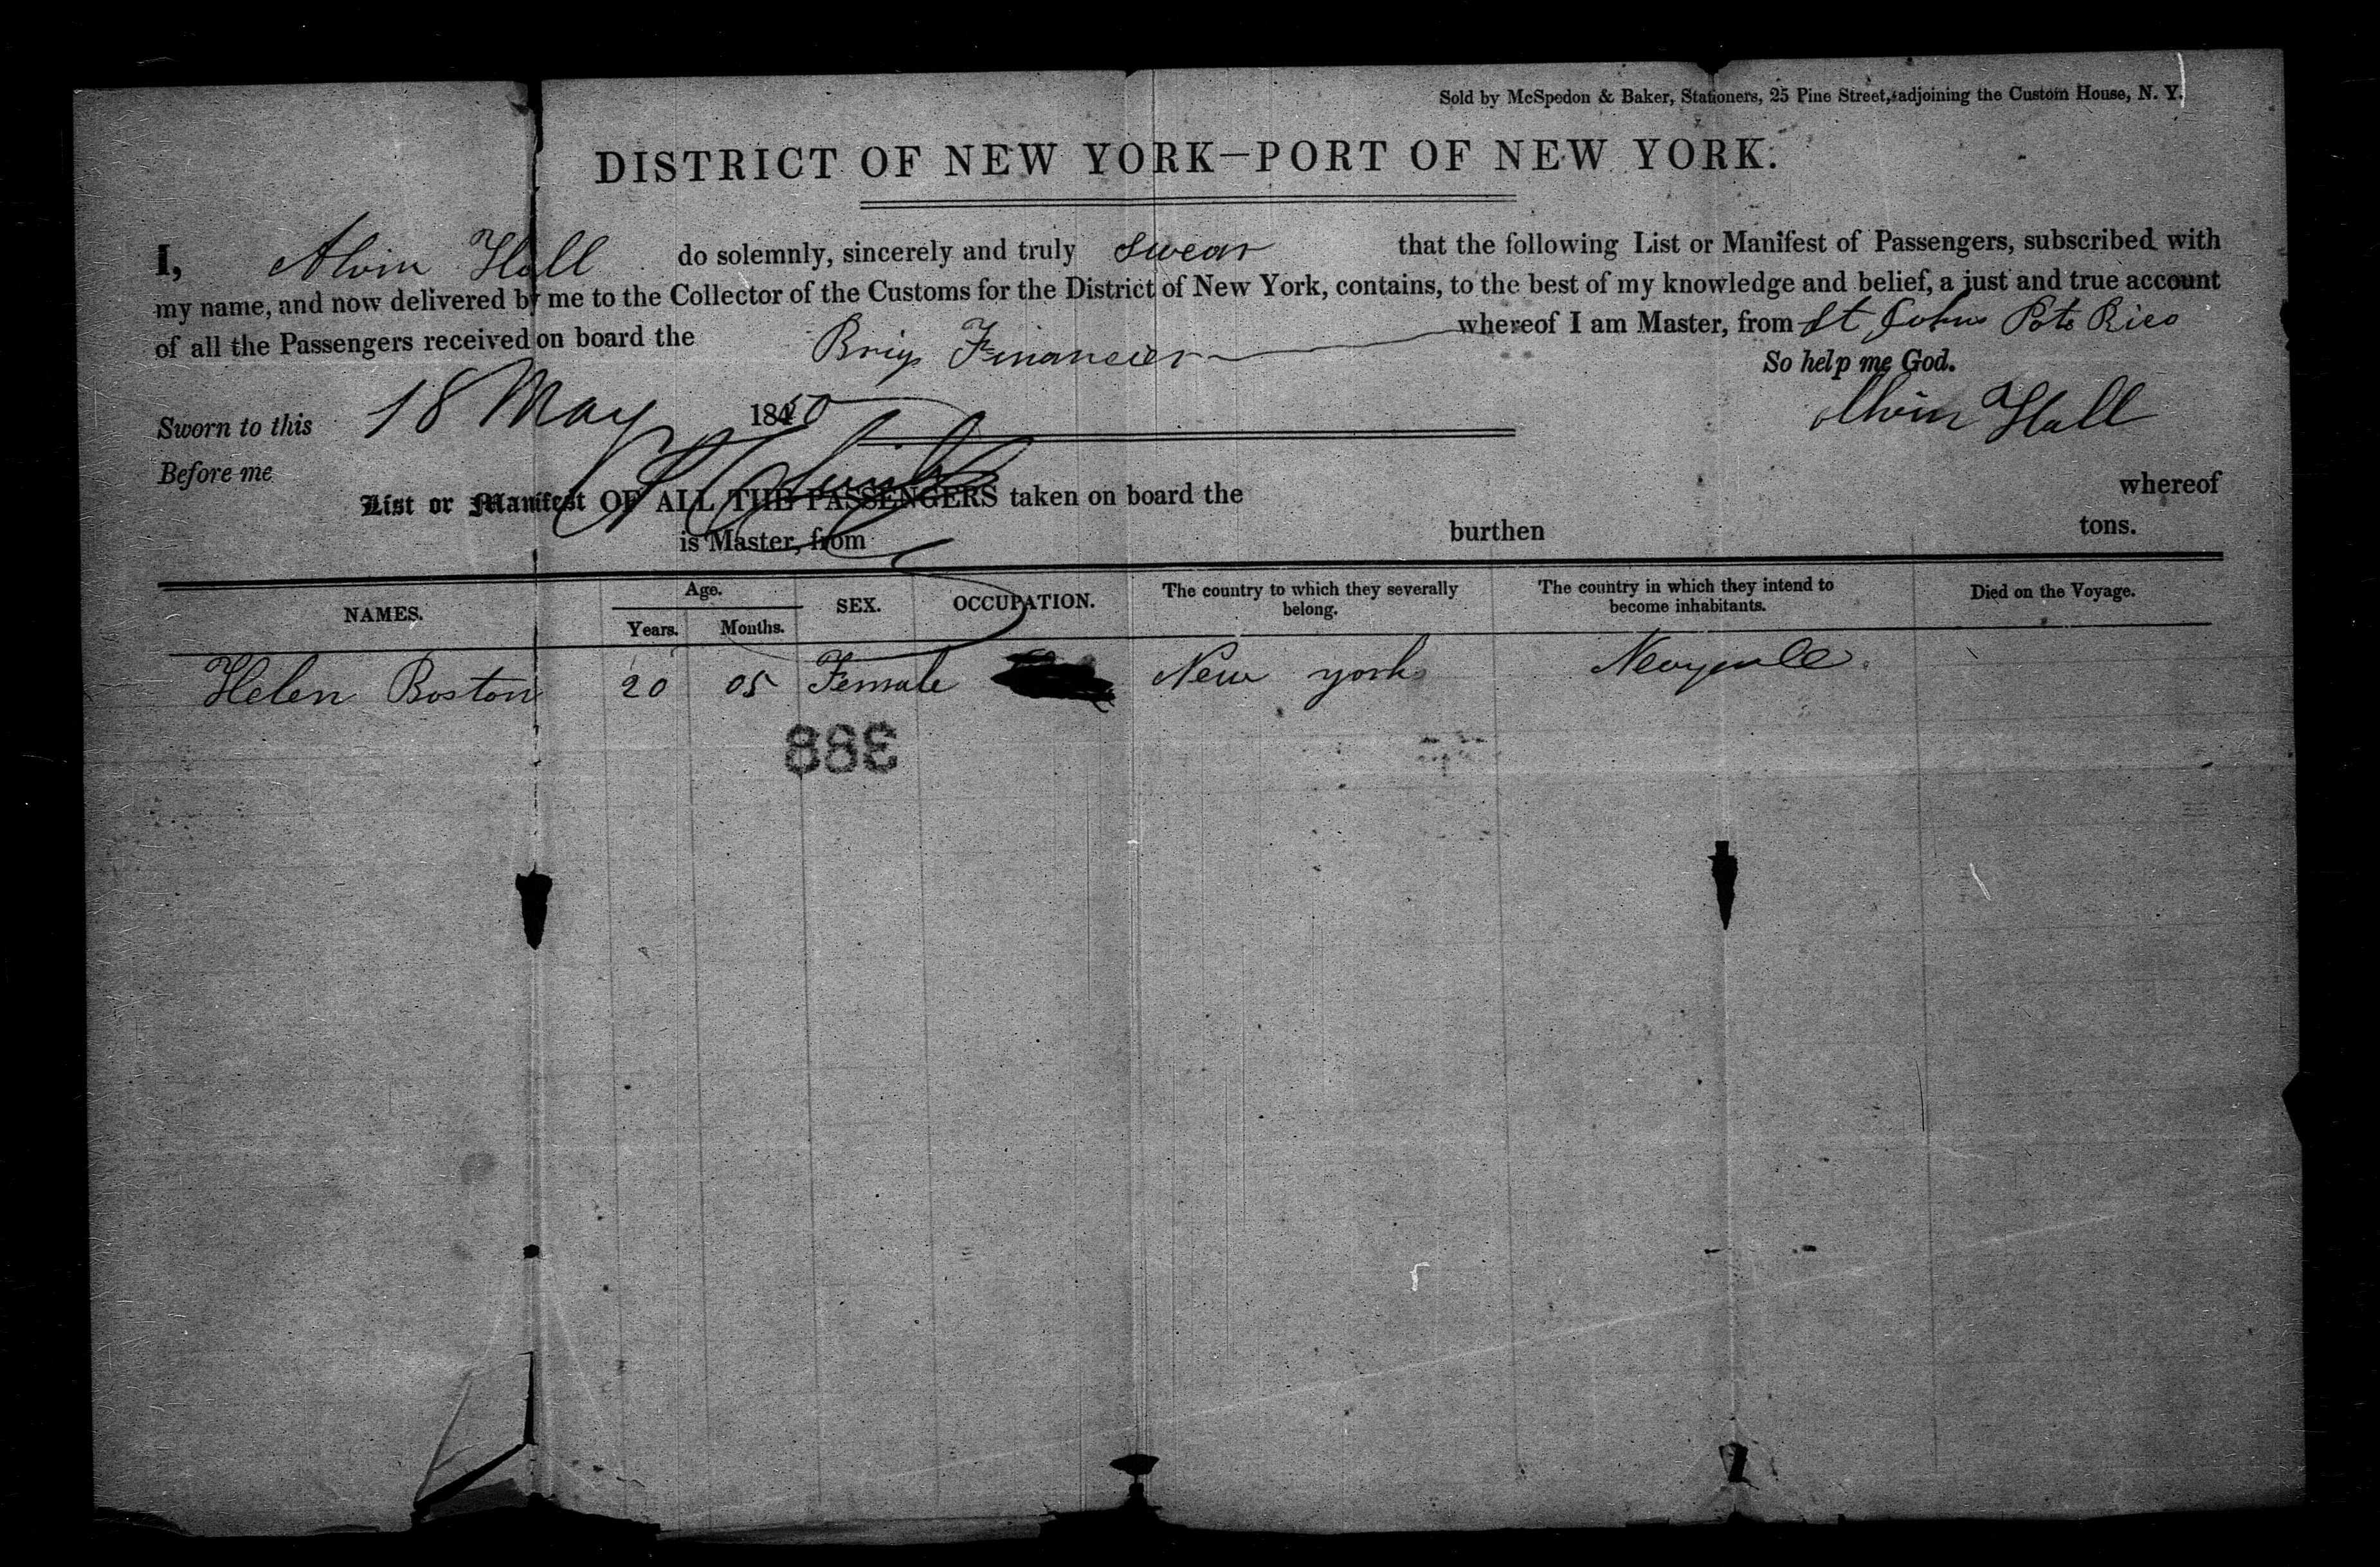 Sold by McSpedon & Baker, Stationers, 25 Pine Street, adjoining the Custom House, N. Y.
DISTRICT OF NEW YORK—PORT OF NEW YORK.
I, Alvin Hall do solemnly, sincerely and truly swear that the following List or Manifest of Passengers, subscribed with
my name, and now delivered by me to the Collector of the Customs for the District of New York, contains, to the best of my knowledge and belief, a just and true account
of all the Passengers received on board the Brig Financier whereof I am Master, from St Johns Poto Rico
So help me God.
Sworn to this 18 May 1850
Alvin Hall
Before me
List or Manifest OF ALL THE PASSENGERS taken on board the whereof
is Master, from burthen tons.
NAMES. Age. SEX. OCCUPATION. The country to which they severally belong. The country in which they intend to become inhabitants. Died on the Voyage.
Years. Months.
Helen Boston 20 05 Female New york
388